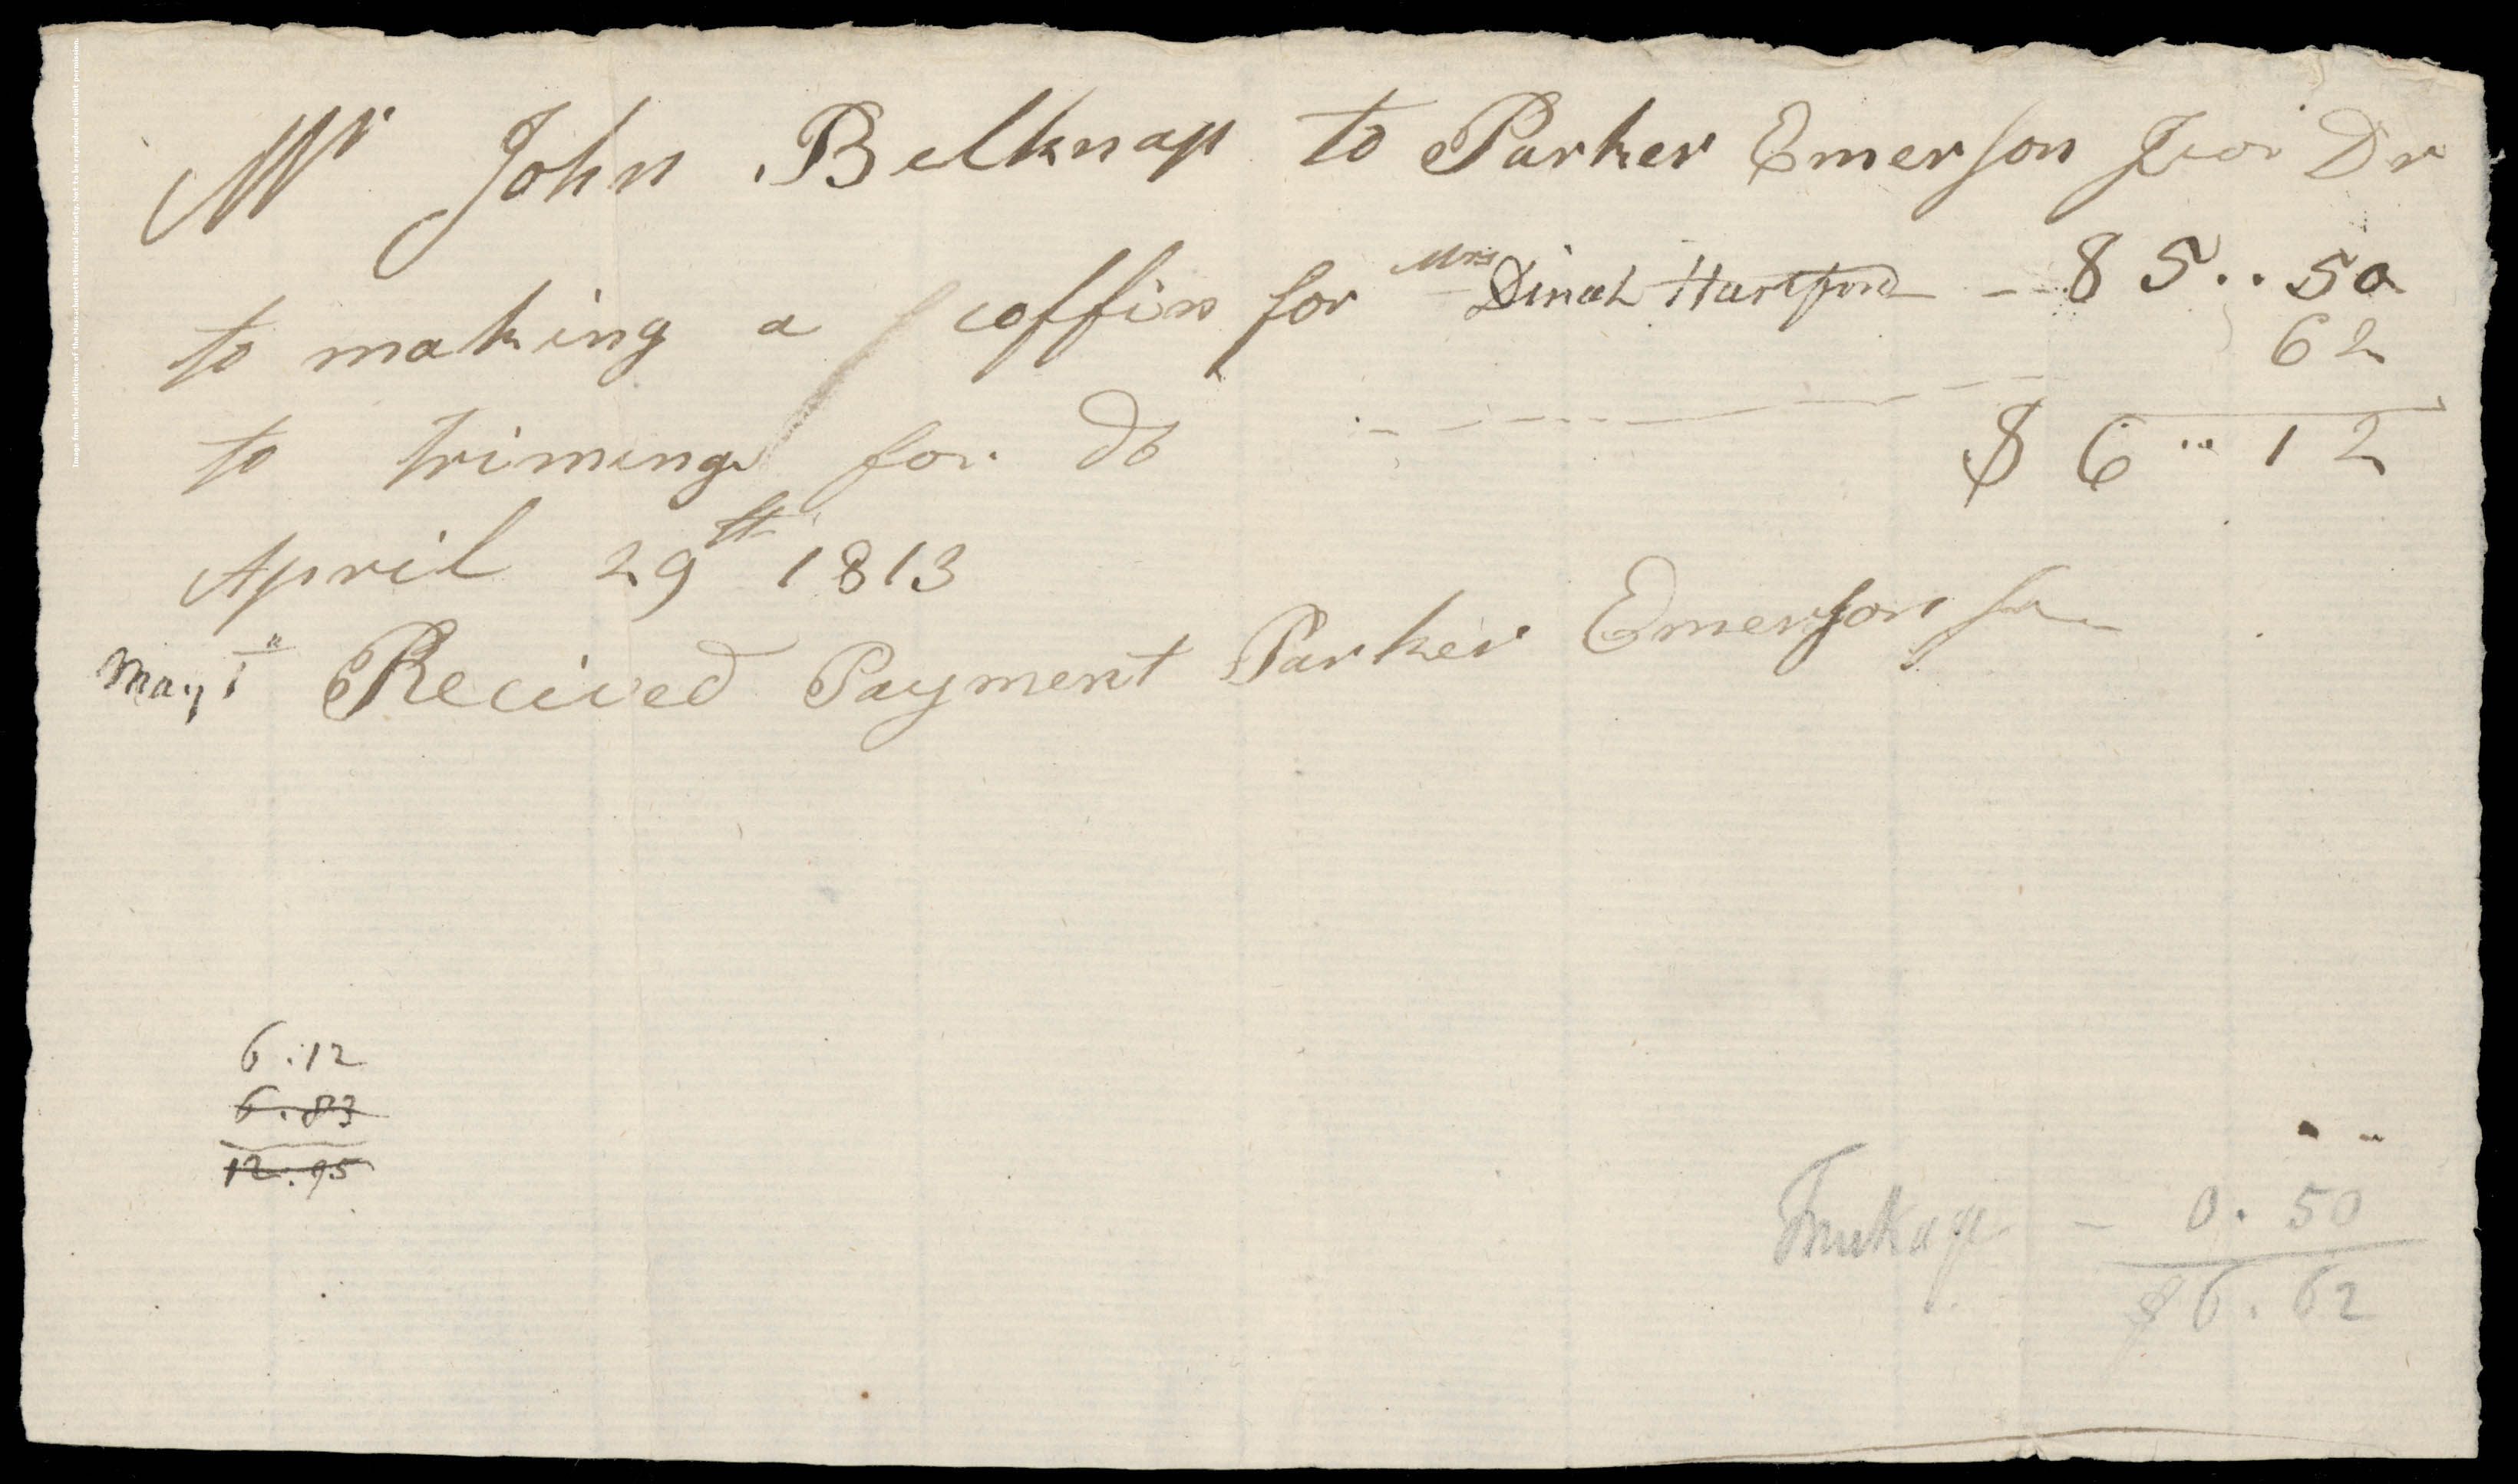 Mr John Belknap to Parker Emerson Jnor Dr
to making a coffin for Mrs Dinah Hartford - - $ 5..50
to triming for do 62
$ 6..12
April 29th 1813
May 1st Recived Payment Parker Emerson Jn
6.12
6.83
12.95
Truckage - 0.50
$6.62
Image from the collections of the Massachusetts Historical Society. Not to be reproduced without permission.